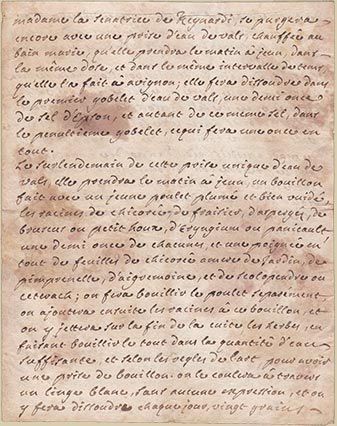 madame la senatrice de Reynardi, se purgera
encore avec une prise d'eau de vals, chauffée au
bain marie, qu'elle prendra le matin à jeun, dans
la même dose, et dans le même intervalle de tems,
qu'elle l'a fait à avignon; elle fera dissoudre dans
le premier gobelet d'eau de vals, une demi once
de sel d'Epson, et autant de ce meme sel, dans
le penultieme gobelet, ce qui fera une once en
tout.
Le surlendemain de cette prise unique d'eau de
vals, elle prendra le matin à jeun, un bouillon
fait avec un jeune poulet plumé et bien vuidé,
les racines, de chicorée, de fraisier, d'asperges, de
bruscus ou petit houx, d'Eryngium ou panicault
une demi once de chacunes, et une poignée en
tout de feuilles de chicorée amere de Jardin, de
pimprenelle, d'aigremoine, et de scolopendre ou
cetrach; on fera bouillir le poulet separément
on ajoutera ensuite les racines à ce bouillon, et
on y jettera sur la fin de la cuite les herbes, en
faisant bouillir le tout dans la quantité d'eau
suffisante, et selon les regles de l'art pour avoir
une prise de bouillon. on le coulera à travers
un linge blanc, sans aucune expression, et on
y fera dissoudre chaque jour, vingt grains